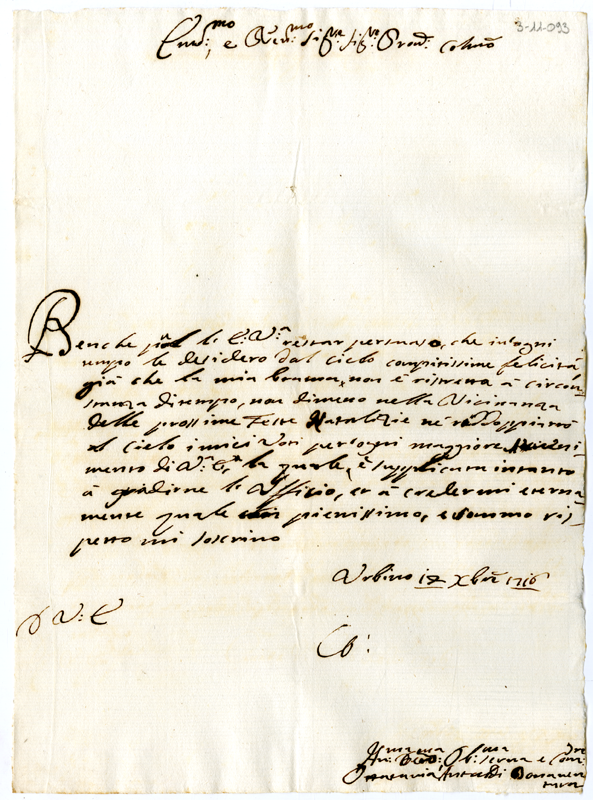 3-11-093
e Sig.re Sig.re Pron. Colmo
Benche possa l' E: V:ra restar persuasa, che in ogni
tempo le desidero dal Cielo compitissime felicità
già che la mia brama, non è ristretta à circon-
stanza di tempo, non dimeno nella Vicinanza
delle prossime Feste Natalizie ne raddoppio
al Cielo i miei Voti per ogni maggiore
mento di V:ra E:za la quale, è supplicata intanto
à gradirne l' Uffizio, et à credermi eterna-
mente quale pienissimo, e sommo ris-
petto mi soscrivo
Urbino 12 Xbre 1716
D V: E
Um:ma
Dev: Ob: Serva e
Antaldi Bonaven
tura